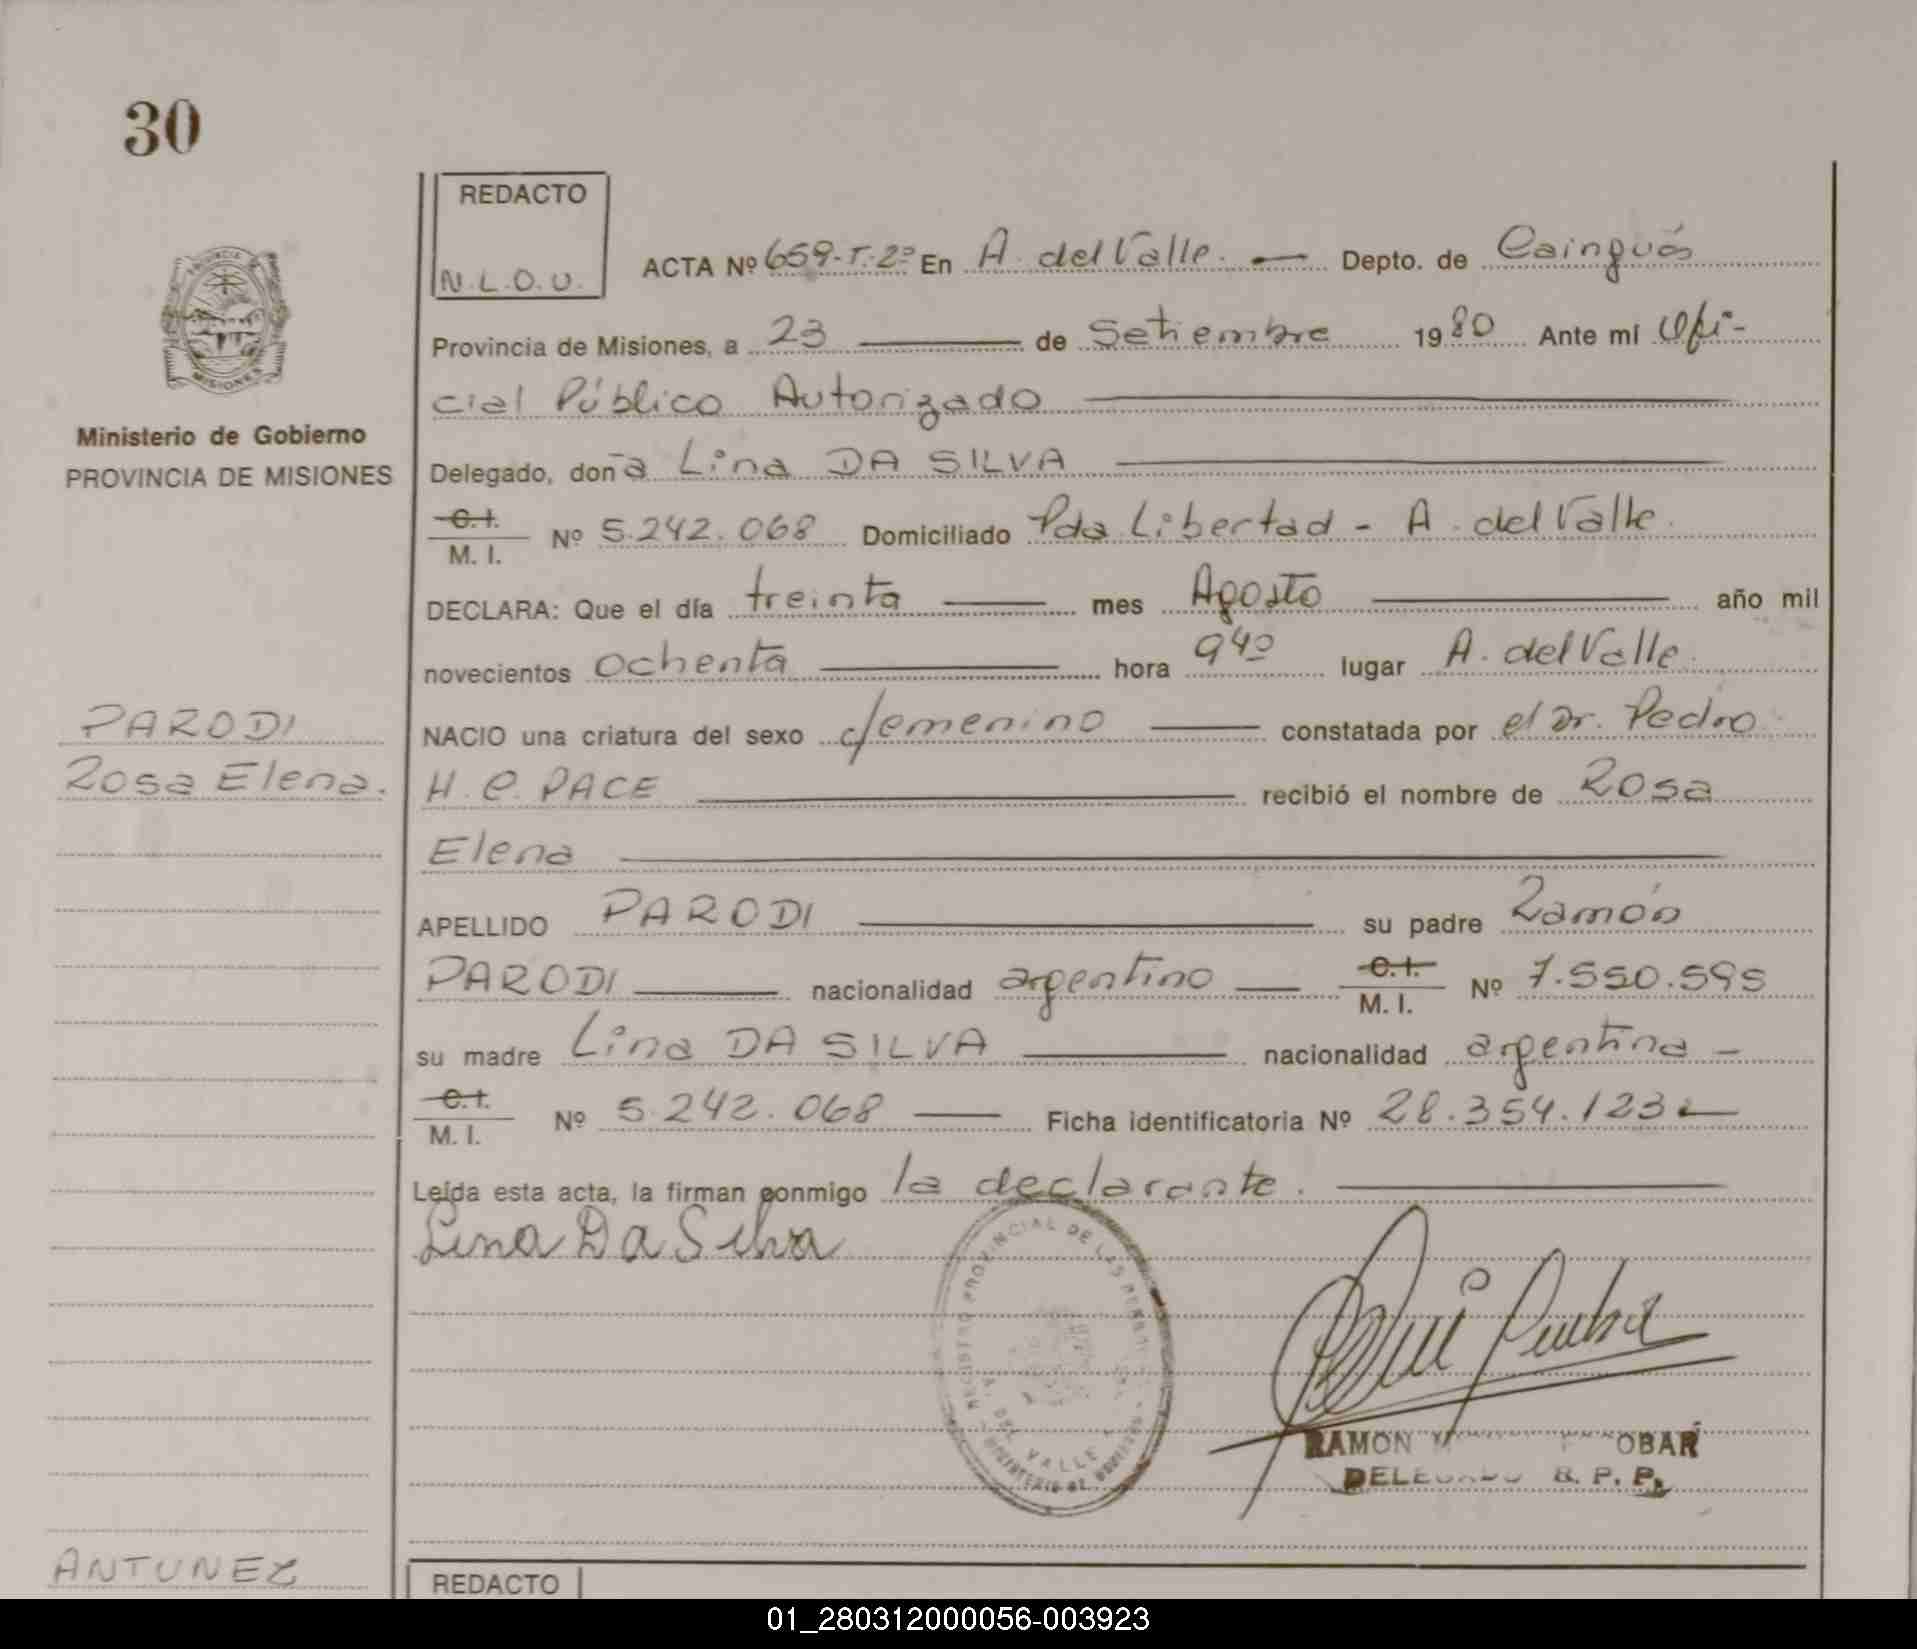 30
REDACTO
N.L.O.U.
ACTA Nº 659-T.2º En A. del Valle. — Depto. de Cainguás
Provincia de Misiones, a 23 — de Setiembre 1980 Ante mí Ofi-
cial Público Autorizado
Ministerio de Gobierno
PROVINCIA DE MISIONES
Delegado, doña Lina DA SILVA
C.I.
M. I. Nº 5.242.068 Domiciliado Pda Libertad - A. del Valle.
DECLARA: Que el día treinta — mes Agosto — año mil
novecientos ochenta — hora 9⁴⁰ lugar A. del Valle.
PARODI
Rosa Elena.
NACIO una criatura del sexo femenino — constatada por el Dr. Pedro
H. C. PACE — recibió el nombre de Rosa
Elena
APELLIDO PARODI — su padre Ramón
PARODI — nacionalidad argentino — C.I.
M. I. Nº 7.550.595
su madre Lina DA SILVA — nacionalidad argentina -
C.I.
M. I. Nº 5.242.068 — Ficha identificatoria Nº 28.354.123
Leída esta acta, la firman conmigo la declarante.
Lina Da Silva
REGISTRO PROVINCIAL DE LAS PERS
A. DEL VALLE
RAMON OBAR
DELEGADO R. P. P.
ANTUNEZ
REDACTO
01_280312000056-003923